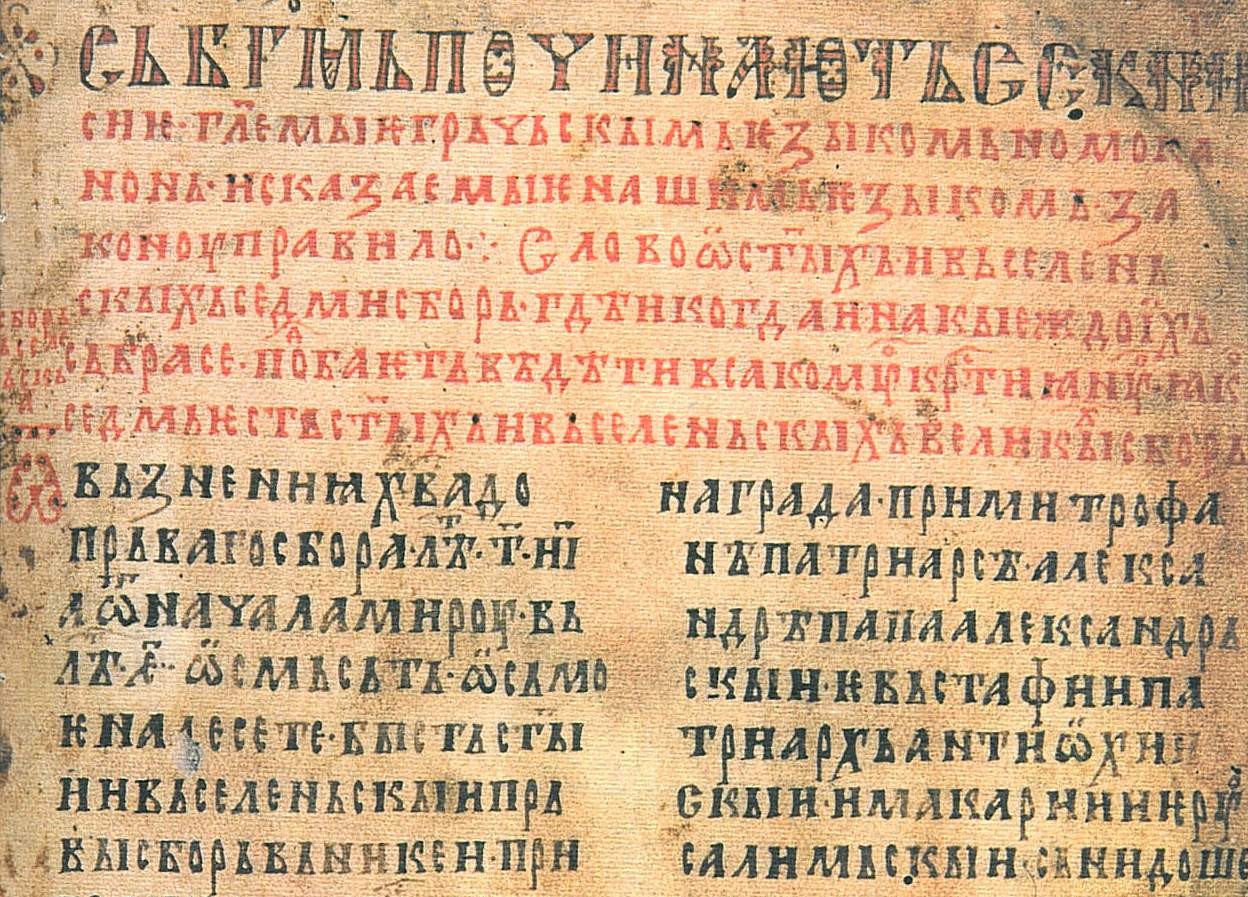 СЬ БГ҃МЬ ПОЧИНАЮТЬ СЕ КНИ
сиѥ· гл҃емыѥ грьчьскымь ѥзыкомь номока
нонь· исказаемыѥ нашимь ѥзыкомь· за
коноу правило·:· Слово ѡ ст҃ыхь и вьселень
скыхь седми сборь· гдѣ и когда и на кыеждо и҃хь
сьбрасе· поⷣбаѥть вѣдѣти всакомꙋ крⷭ҇тиꙗнинꙋ· ꙗк
седмь ѥсть ст҃ыхь и вьселеньскыхь великыⷯ сборь
вьзнениꙗ хва до
прьваго сбора· лѣⷮ· т҃· и҃і
а ѿ начала мироу· вь
лѣⷮ· е҃·· ѡсмьсьть· ѡсьмо
ѥ на десете· бысть ст҃ы
и и вьселеньскыи прь
вы сборь вь никеи· при
награда· при митрофа
нѣ патриарсѣ· алекса
ндрѣ папа александрь
скыи· ѥвьстафии па
триархь антиѡхии
скыи· и макарии иѥроуⷭ
салимьскыи· сьнидоше